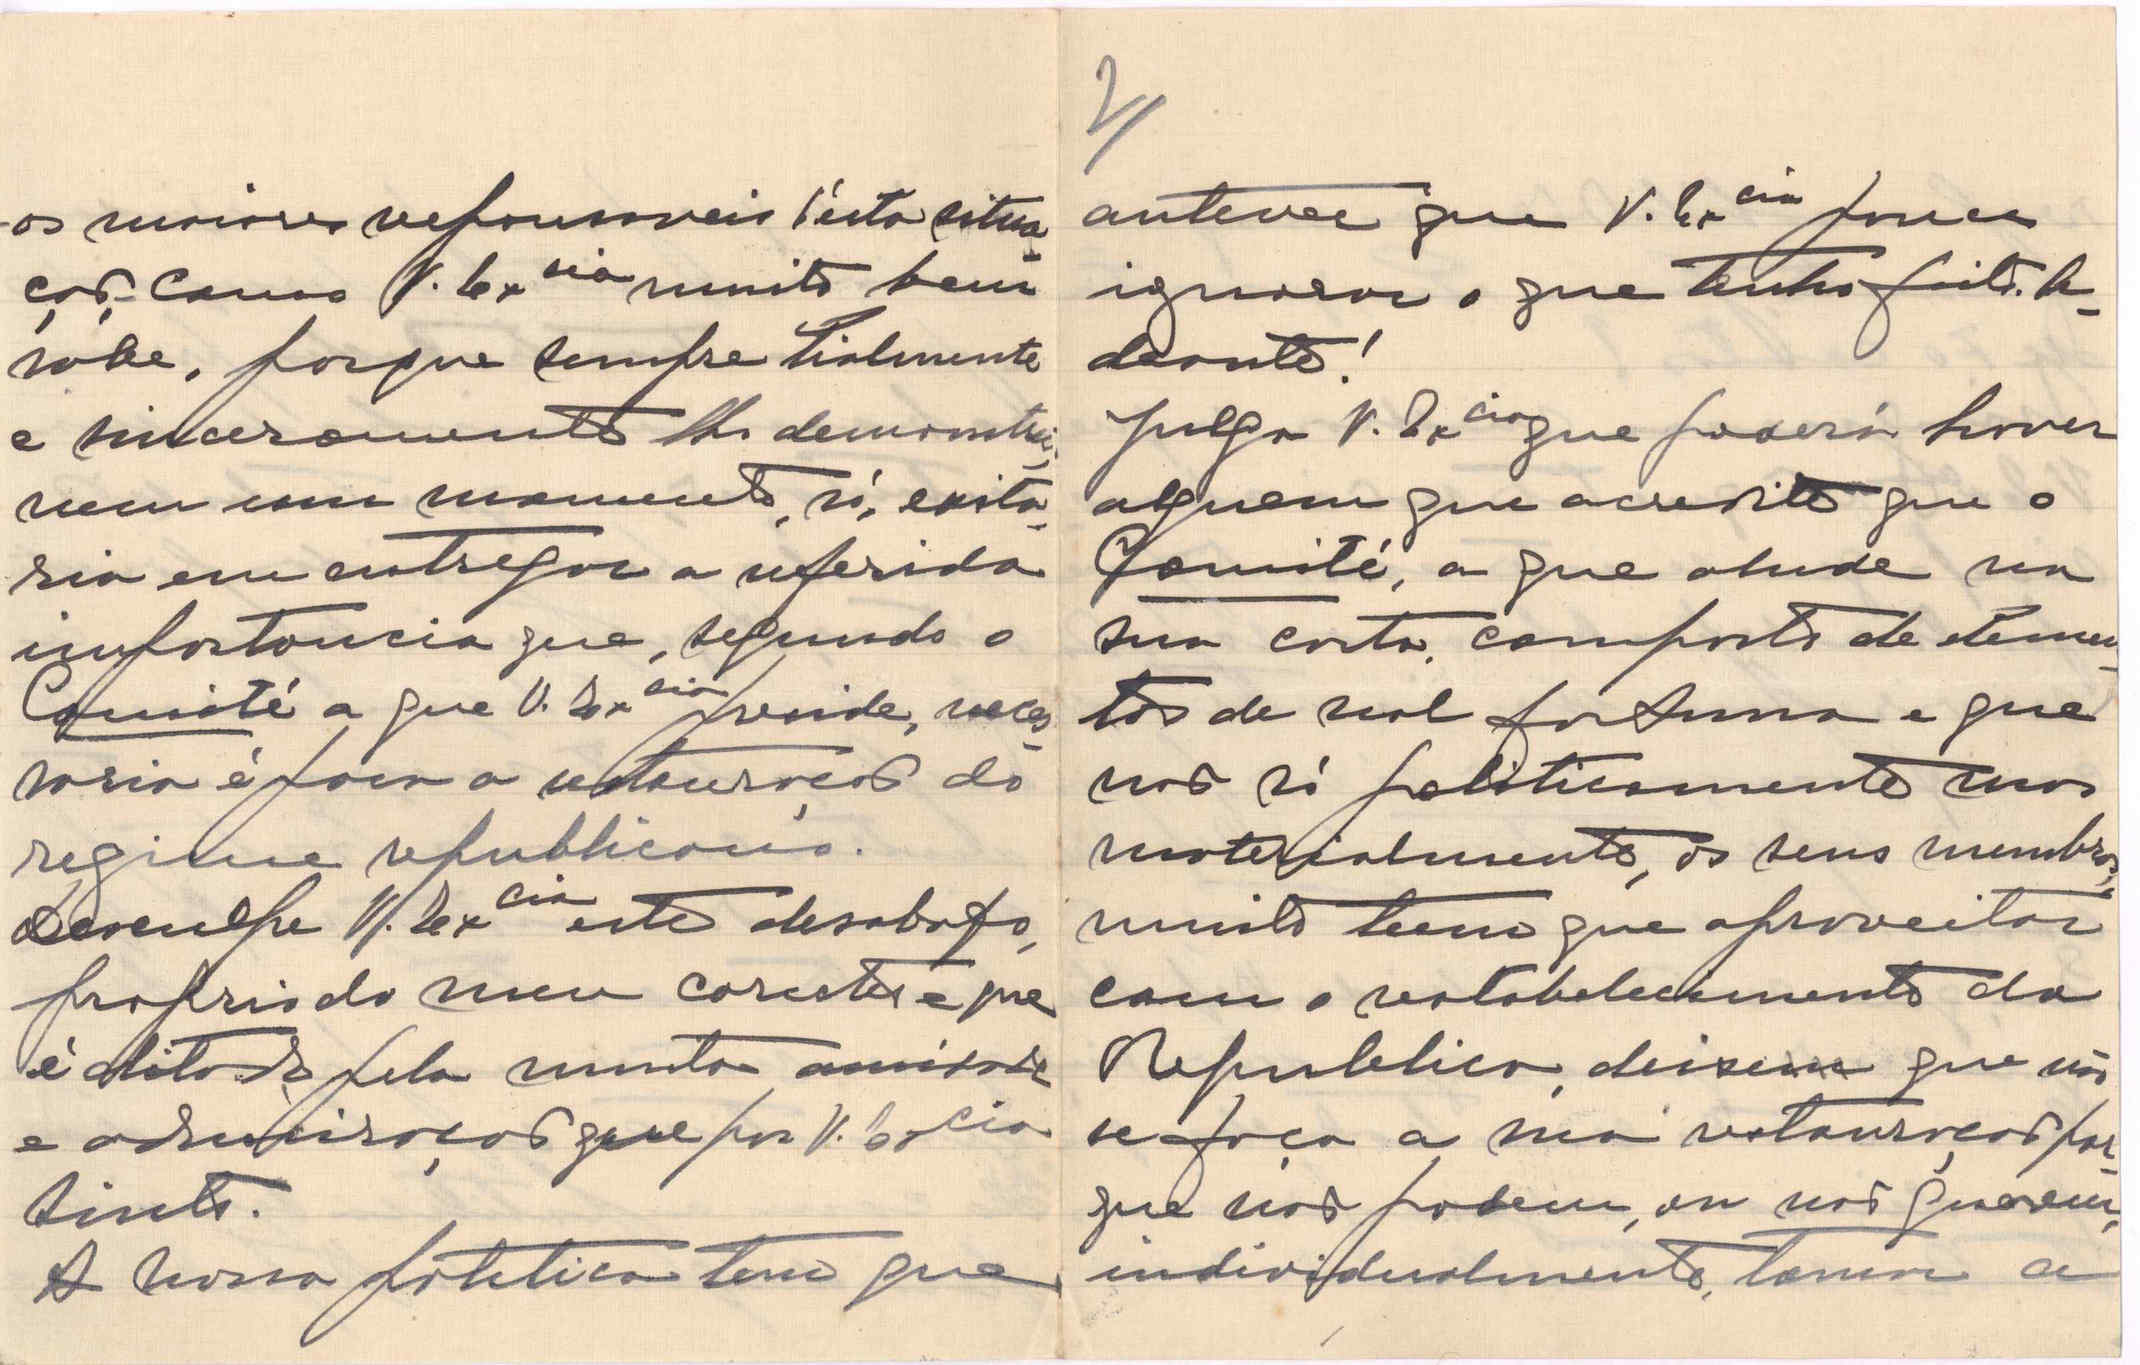 os maiores responsaveis d'esta situa-
ção. Como V. Ex cia muito bem
sabe, porque sempre lialmente
e sinceramente lh'o demonstrei,
nem um momento, só, exita-
ria em entregar a referida
importancia que, segundo o
Comité a que V. Ex cia preside, neces-
saria é para a restauração do
regime republicano.
Desculpe V. Ex cia este desabafo,
proprio do meu caracter e que
é ditado pela muita amisade
e admiração que por V. Ex cia
sinto.
A nossa politica tem que
2/
antever que V. Ex cia possa
ignorar o que tenho feito. A-
deante!
Julga V. Ex cia que poderá haver
alguem que acredite que o
Comité, a que alude na
sua carta, composto de elemen-
tos de tal fortuna e que
não só politicamente mas
materialmente, os seus membros,
muito teem que aproveitar
com o restabelecimento da
Republica, deixem que não
se faça a sua restauração por-
que não podem, ou não querem,
individualmente, tomar a